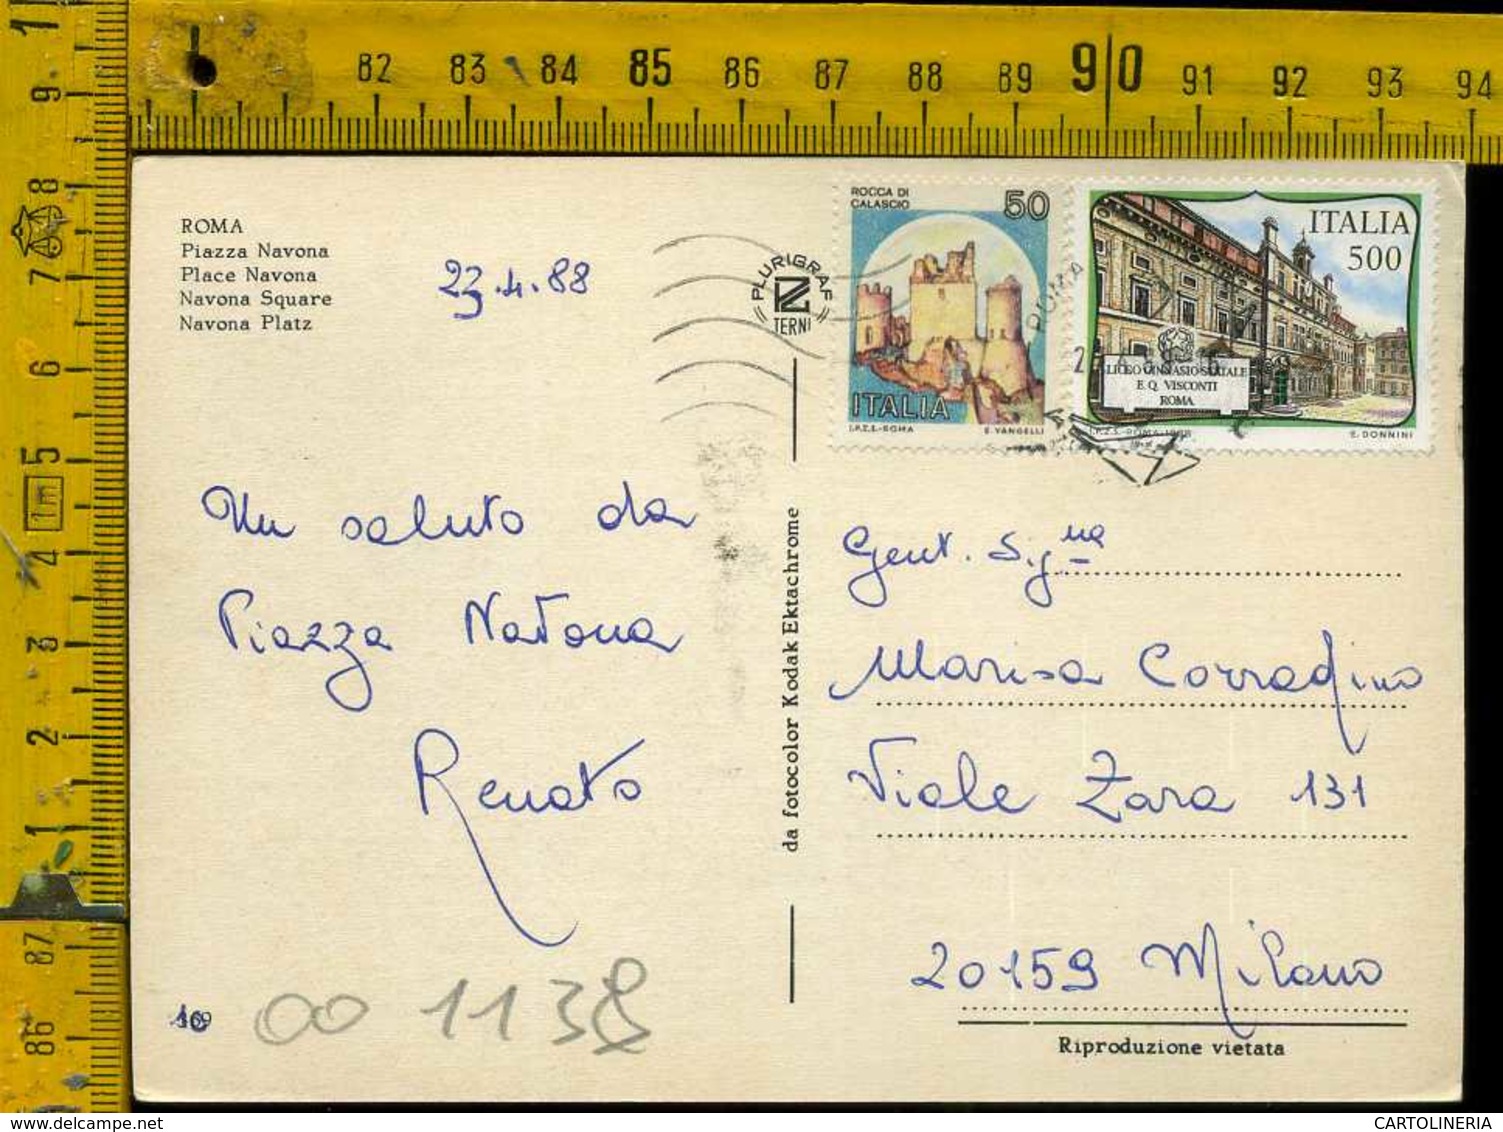 82 83 84 85 86 87 88 89 90 91 92 93 94
1 9 8 7 6 5 1m 4 3 2 1 87 86
ROMA
Piazza Navona
Place Navona
Navona Square
Navona Platz
23.4.88
PLURIGRAF
TERNI
ROCCA DI
CALASCIO
50
ITALIA
I.P.Z.S.-ROMA E. VANGELLI
ROMA
ITALIA
500
LICEO GINNASIO STATALE
E. Q. VISCONTI
ROMA
I.P.Z.S.-ROMA-1988 E. DONNINI
Un saluto da
Piazza Navona
Renato
da fotocolor Kodak Ektachrome
Gent. Sig.na
Marisa Corradino
Viale Zara 131
20159 Milano
Riproduzione vietata
00 1138
CARTOLINERIA